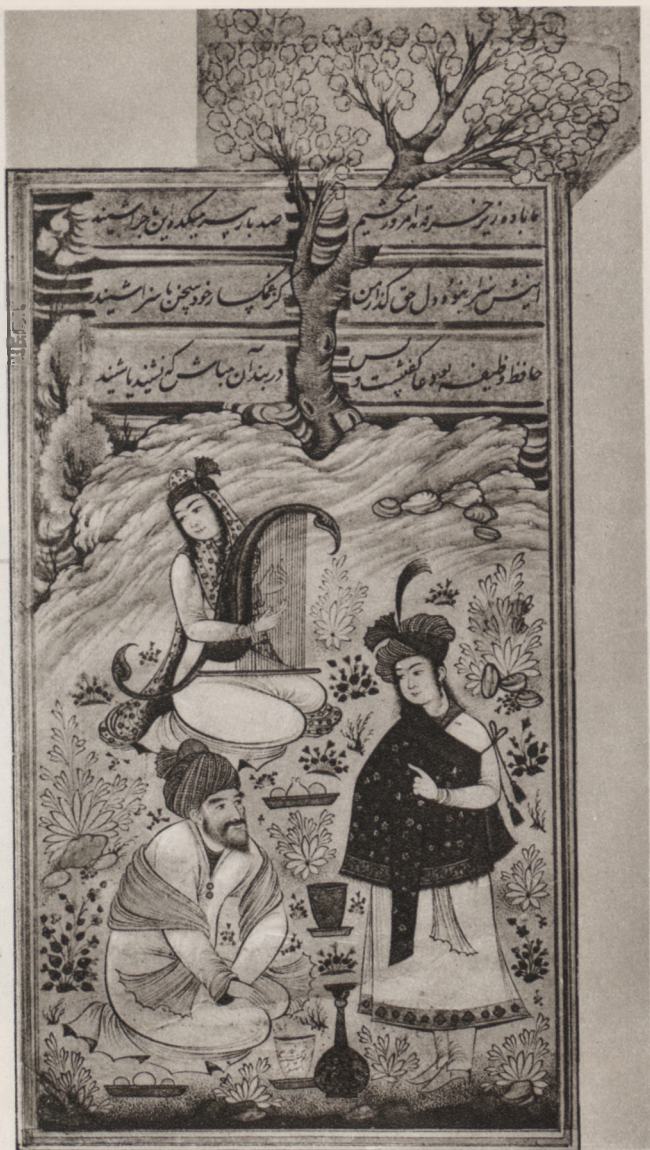 ما باده زیر خرقه نه امروز میکشیم صد بار پیر میکده این ماجرا شنید
اینش سزا نبود دل حق گذار من کز غمگسار خود سخن ناسزا شنید
حافظ وظیفه تو دعا گفتنست و بس در بند آن مباش که نشنید یا شنید